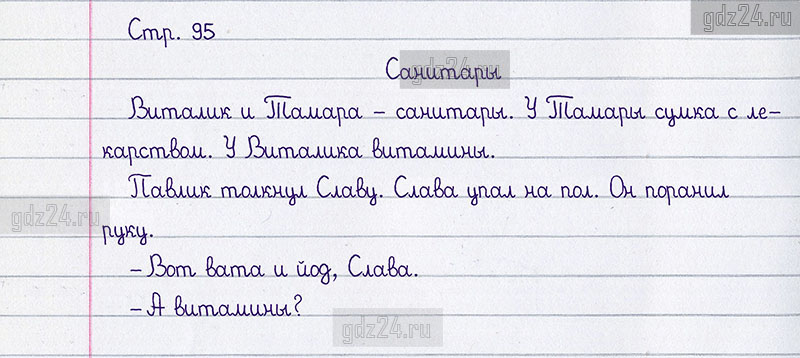 gdz24.ru
Стр. 95
gdz24.ru
Санитары
Виталик и Тамара – санитары. У Тамары сумка с ле-
карством. У Виталика витамины.
Павлик толкнул Славу. Слава упал на пол. Он поранил
gdz24.ru
руку.
– Вот вата и йод, Слава.
– А витамины?
gdz24.ru